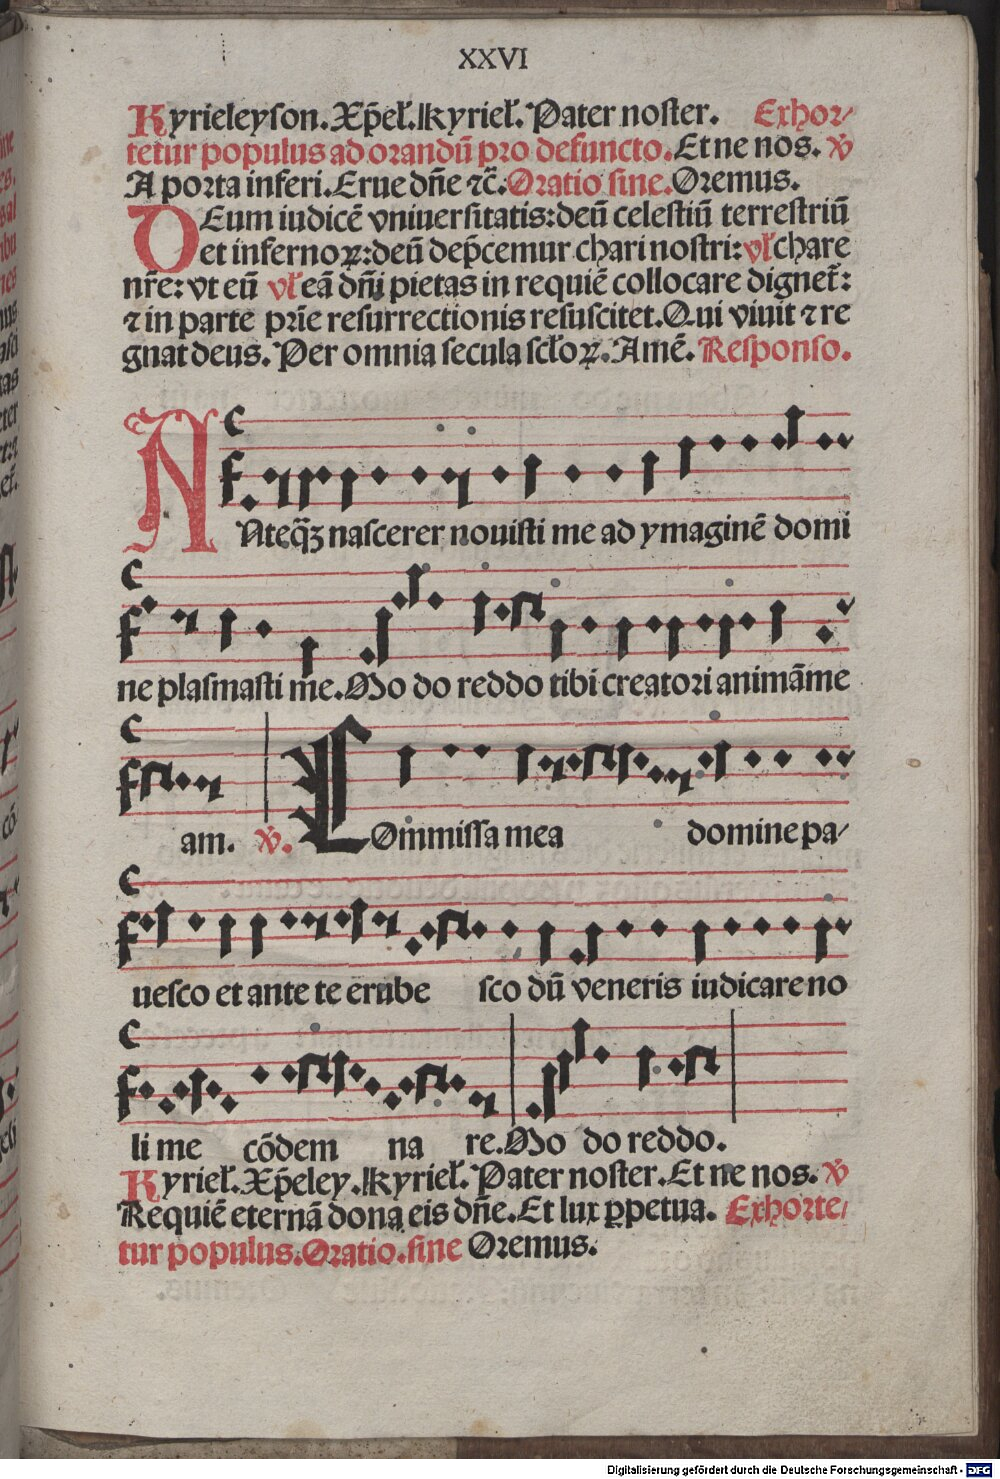 XXVI
Kyrieleyson. Xp̄eł. Kyrieł. Pater noster. Exhor-
tetur populus ad orandū pro defuncto. Et ne nos. ℣
A porta inferi. Erue dn̄e ⁊c̄. Oratio sine. Oremus.
DEum iudicē vniuersitatis: deū celestiū terrestriū
et infernoꝝ: deū dep̄cemur chari nostri: vł chare
nr̄e: vt eū vł eā dn̄i pietas in requiē collocare dignet̄:
⁊ in parte pr̄ie resurrectionis resuscitet. Qui viuit ⁊ re
gnat deus. Per omnia secula scłoꝝ. Amē. Responso.
ANteq̄ꝫ nascerer nouisti me ad ymaginē domi
ne plasmasti me. Mo do reddo tibi creatori animā me
am. ℣. COmmissa mea domine pa-
uesco et ante te erube sco dū veneris iudicare no
li me cōdem na re. Mo do reddo.
Kyrieł. Xp̄eley. Kyrieł. Pater noster. Et ne nos. ℣
Requiē eternā dona eis dn̄e. Et lux ꝑpetua. Exhorte-
tur populus. Oratio. sine Oremus.
Digitalisierung gefördert durch die Deutsche Forschungsgemeinschaft - DFG